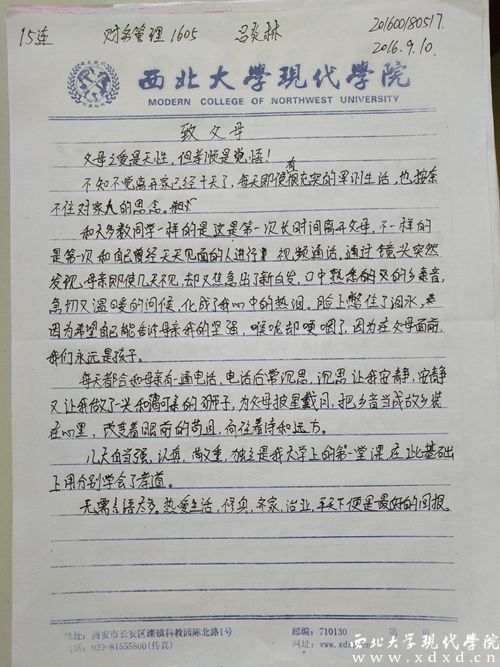 15连 财务管理1605 吕炎琳 201600180517.
2016.9.10.
西北大學現代學院
MODERN COLLEGE OF NORTHWEST UNIVERSITY
致父母
父母之爱是天性，但孝顺是觉悟！
不知不觉离开家已经十天了，每天即便有很充实的军训生活，也按奈
不住对家人的思念。
和大多数同学一样的是这是第一次长时间离开父母，不一样的
是第一次和自己曾经天天见面的人进行 视频通话，通过镜头突然
发现，母亲即使几天不见，却又焦急出了新白发，口中熟悉的 的乡秦音，
急切又温暖的问候，化成了我心中的热泪。脸上憋住了泪水，
因为希望自己能告诉母亲我的坚强，喉咙却哽咽了，因为在父母面前，
我们永远是孩子。
每天都会和母亲有一通电话，电话后常沉思，沉思让我安静，安静
又让我做了一头和蔼可亲的狮子，为父母披星戴月，把乡音当成故乡装
在心里，改变着眼前的苟且，向往着诗和远方。
几天自强、认真、 重，独立是我大学上的第一堂课，在此基础
上用分别学会了孝道。
无需言语太多。热爱生活，修身、齐家、治业，平天下便是最好的回报。
地址：西安市长安区滦镇科教园陈北路1号 邮编：710130
电话：029-81555800(传真) 网址：www.xdxd.cn
西北大学现代学院
www.xdxd.cn